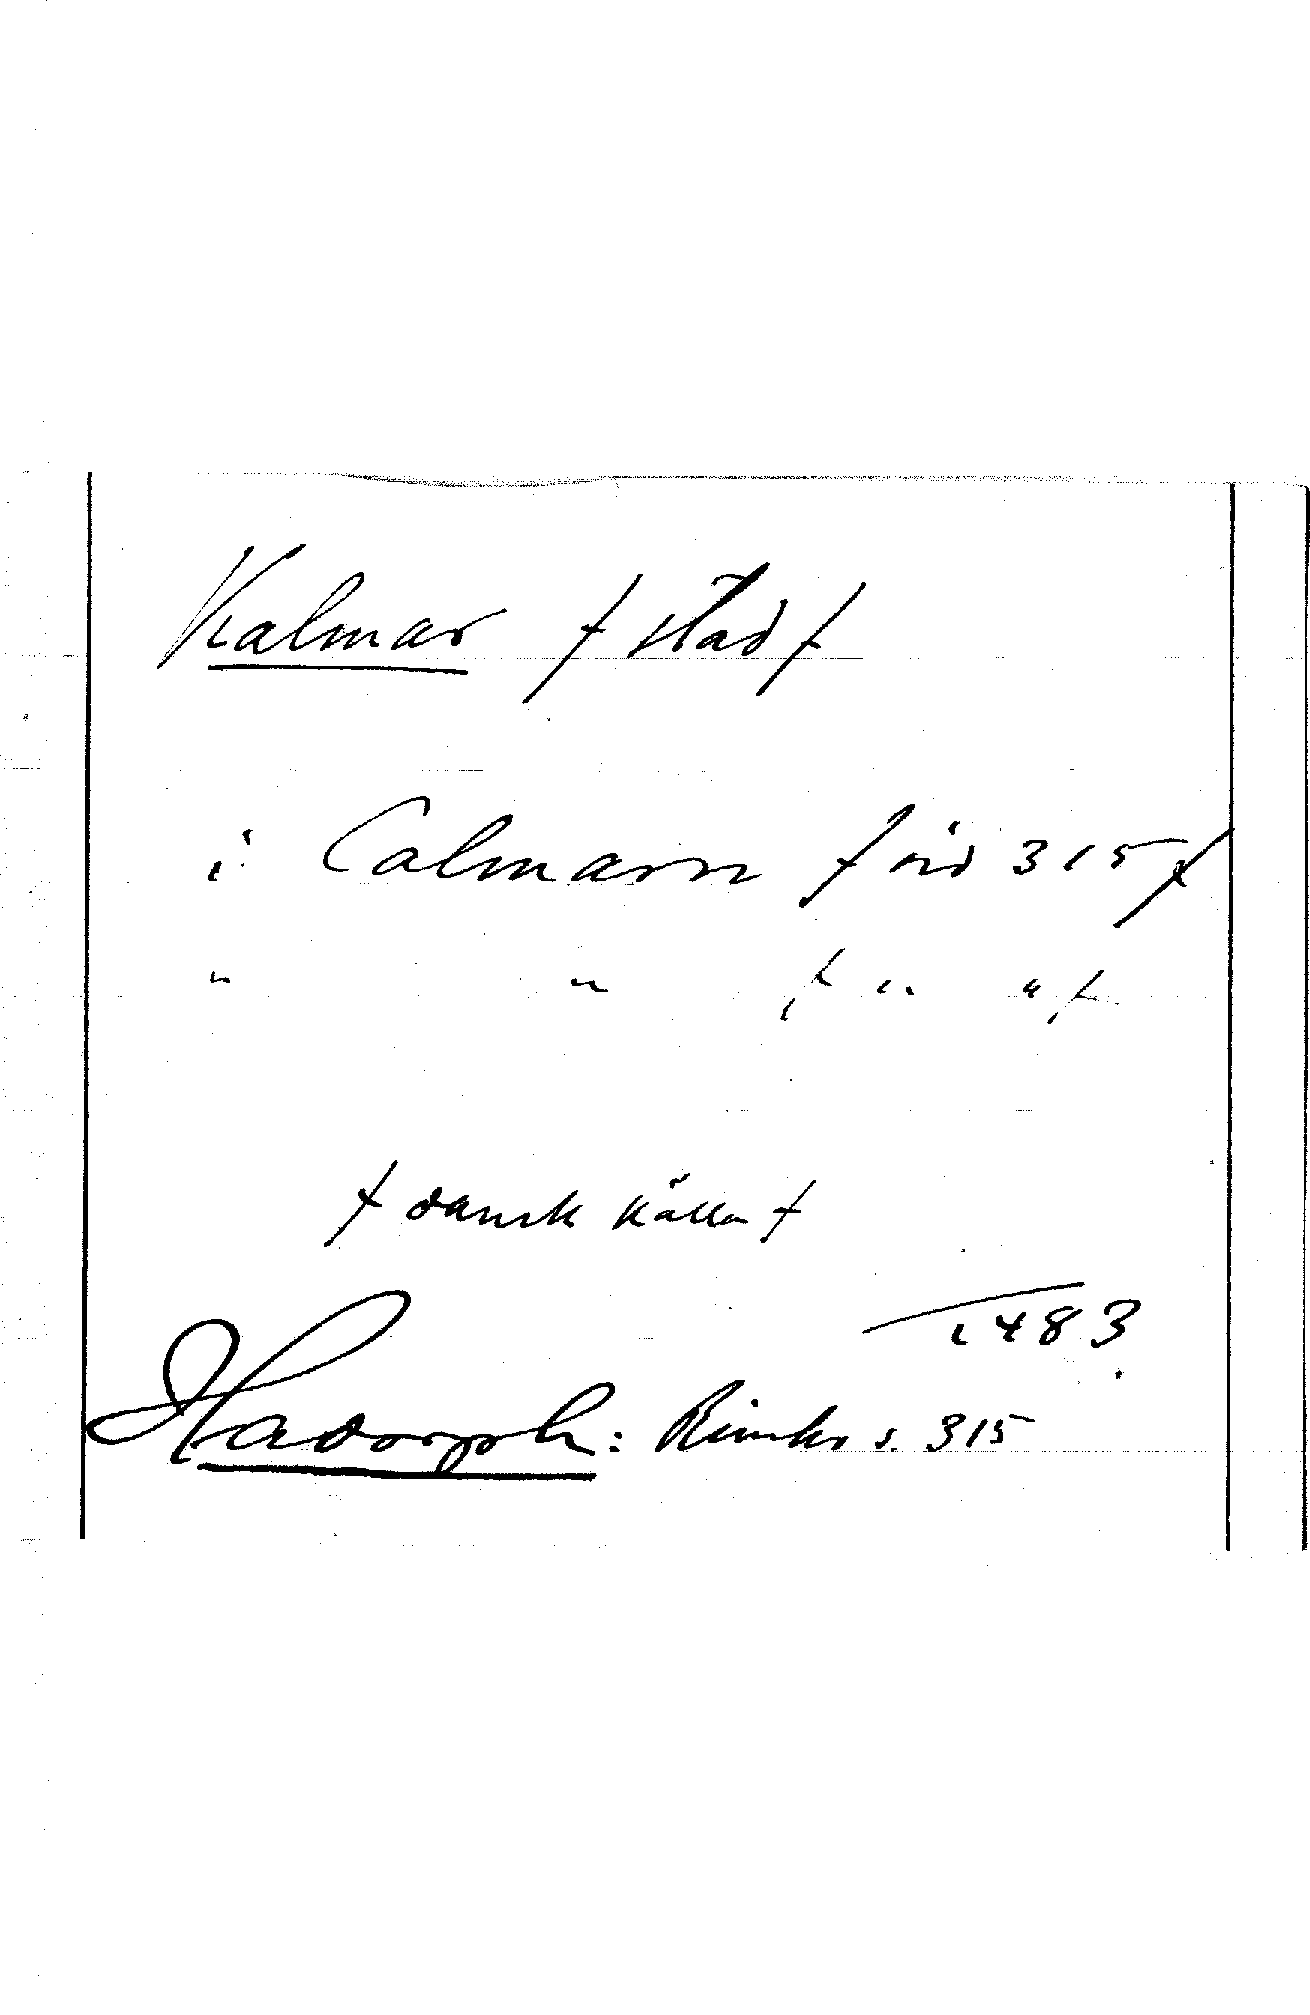 Kalmar / stad /
i Calmarn / sid 315 /
" " / " " /
/ dansk källa /
1483
Hadorph: Rimkr s. 315